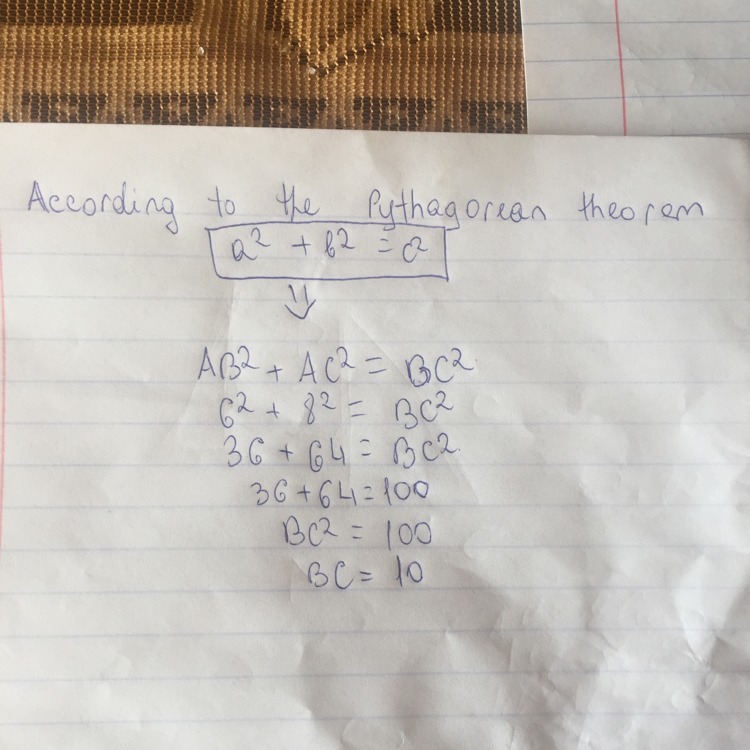 According to the Pythagorean theorem
a² + b² = c²
⇓
AB² + AC² = BC²
6² + 8² = BC²
36 + 64 = BC²
36 + 64 = 100
BC² = 100
BC = 10